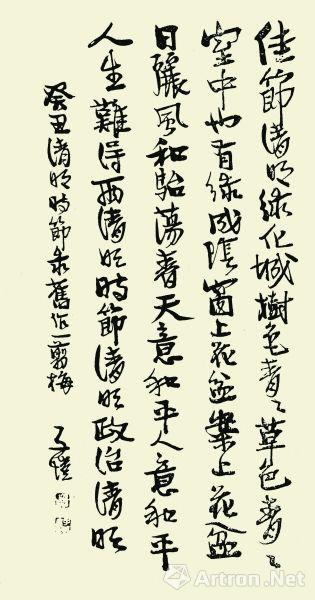 佳節清明綠化城樹色青々草色青々
室中也有綠成陰窗上花盆案上花盆
日麗風和駘蕩春天意和平人意和平
人生難得兩清明時節清明政治清明
癸丑清明時節錄舊作一剪梅 子愷
Artron.Net